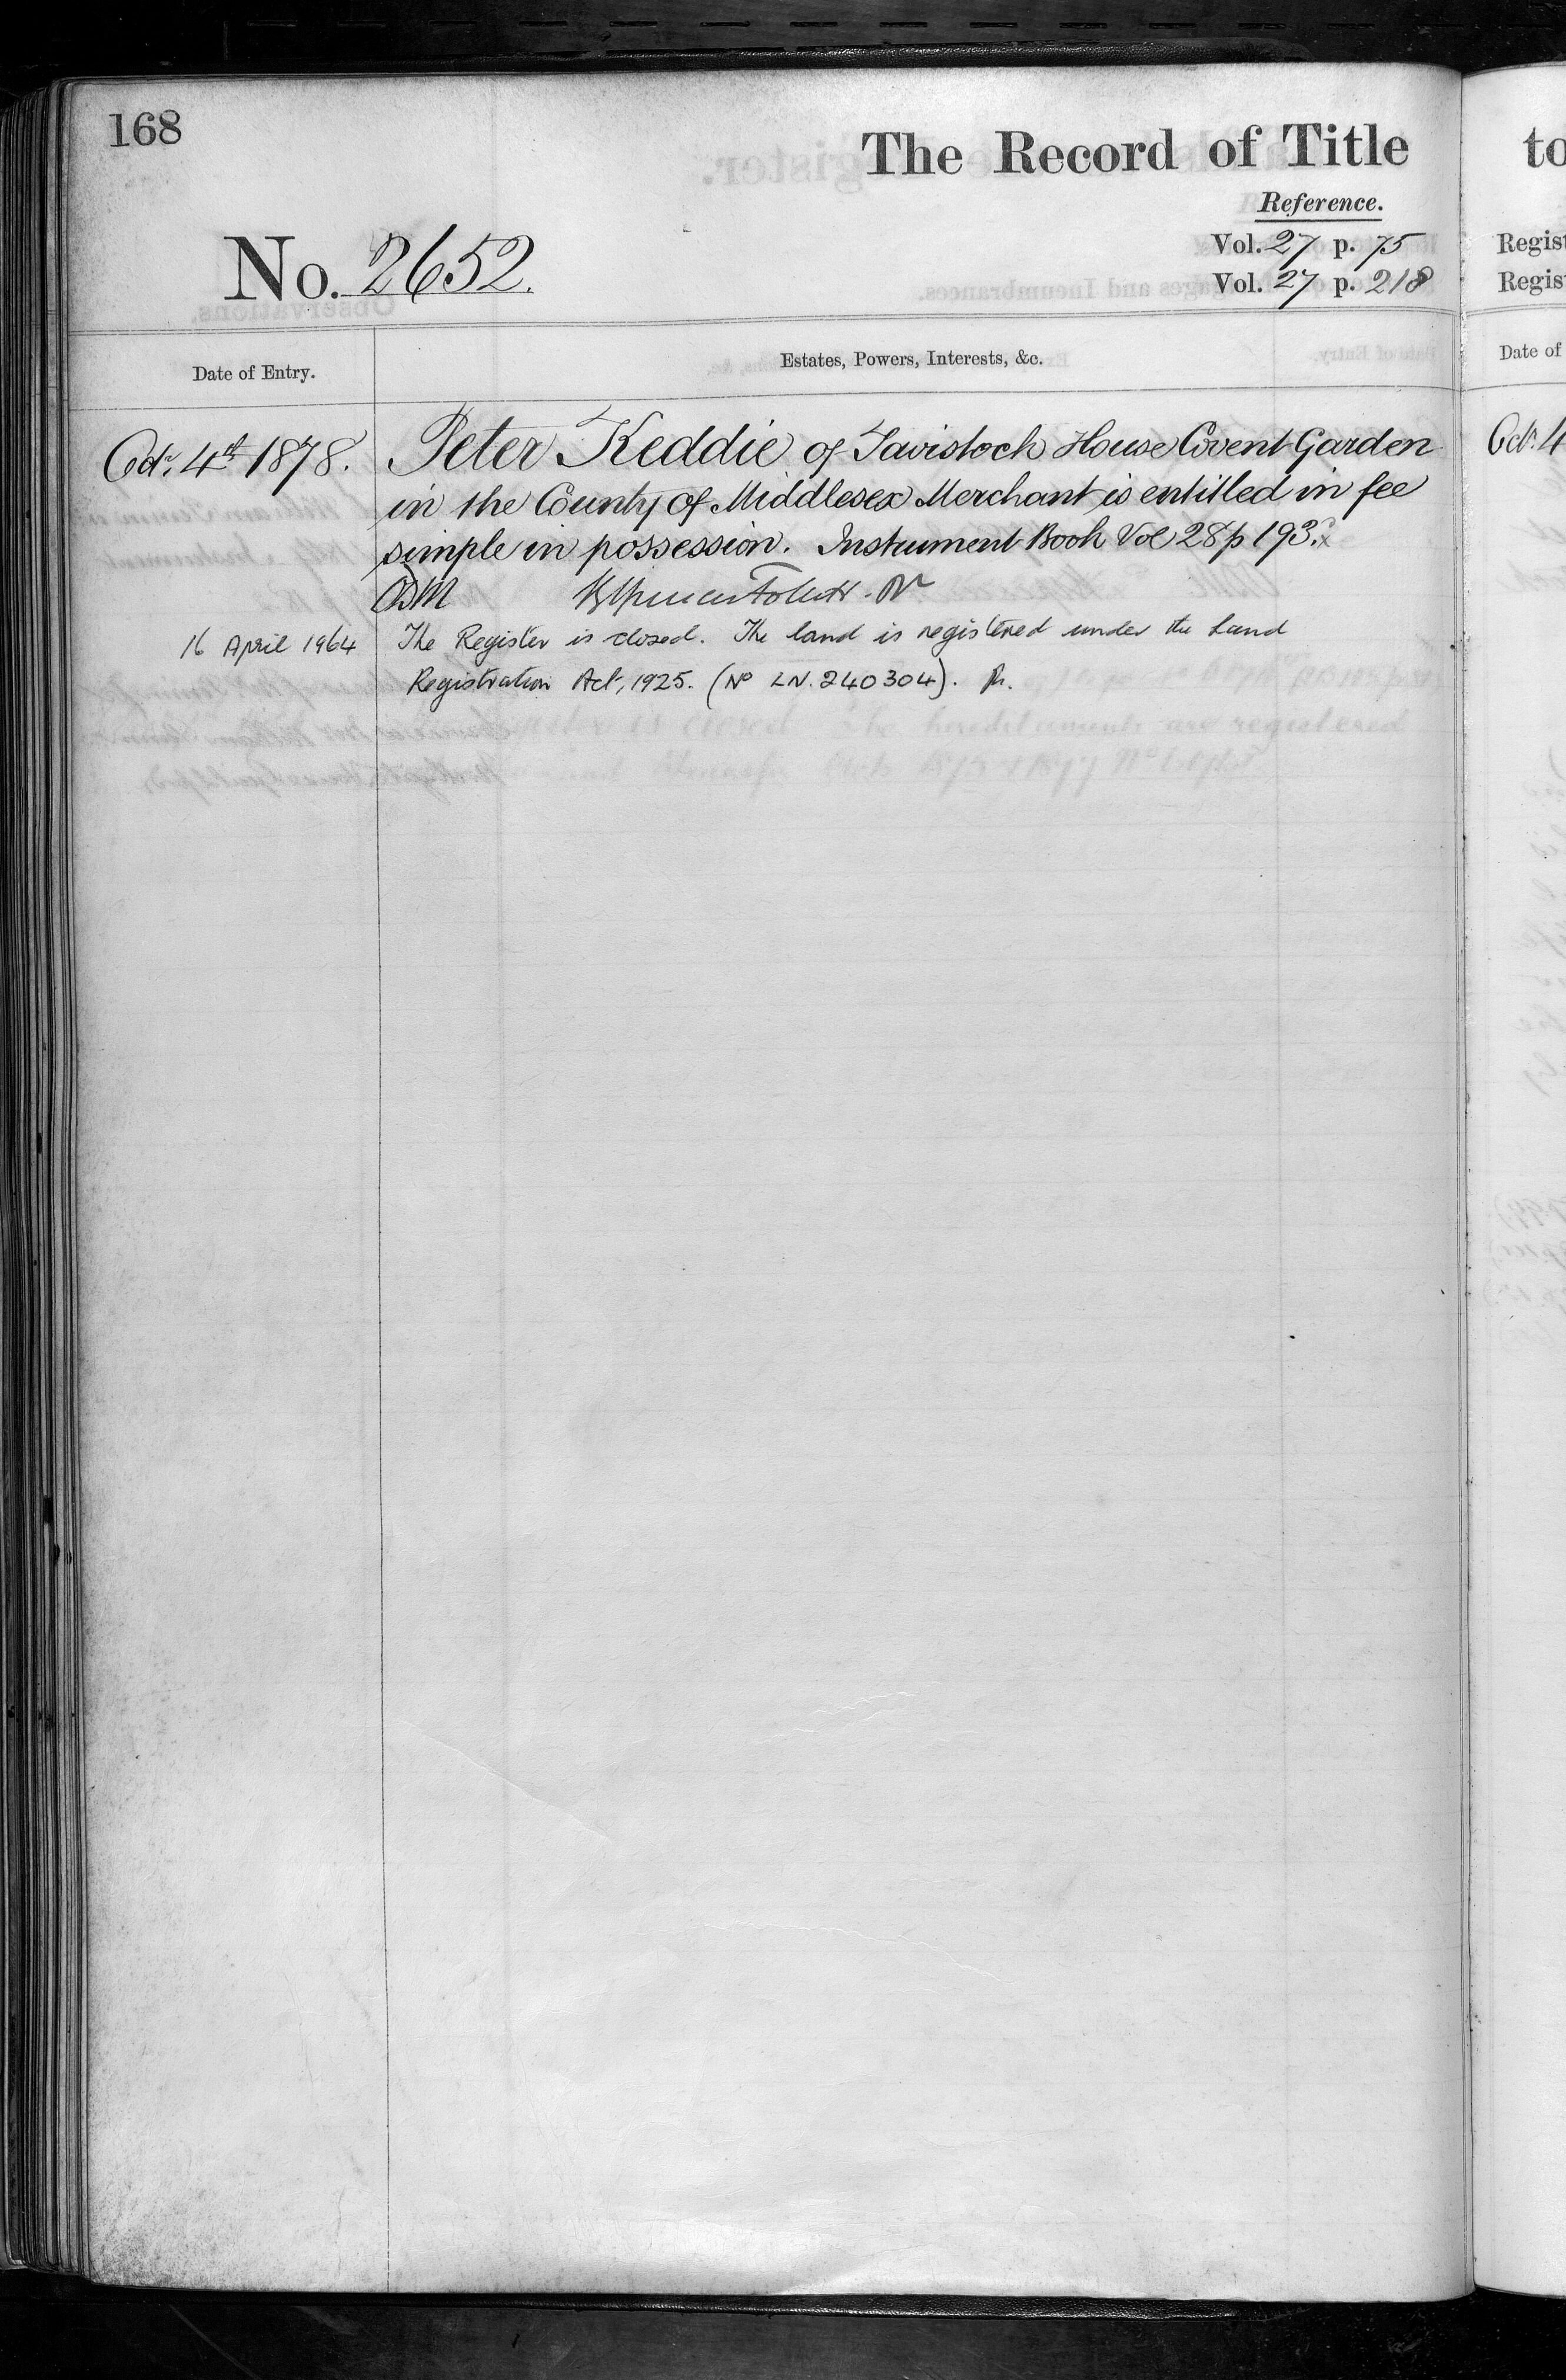 168
The Record of Title
Reference.
Vol. 27 p. 75
Vol. 27 p. 218
No. 2652.
Date of Entry.
Estates, Powers, Interests, &c.
Octr. 4th 1878.
Peter Keddie of Tavistock House Covent Garden
in the County of Middlesex Merchant is entitled in fee
simple in possession. Instrument Book Vol 28 p 193.
16 April 1964
The Register is closed. The land is registered under the Land
Registration Act, 1925. (No LN. 240304).
to
Regist
Regis
Date of
Octr. 4